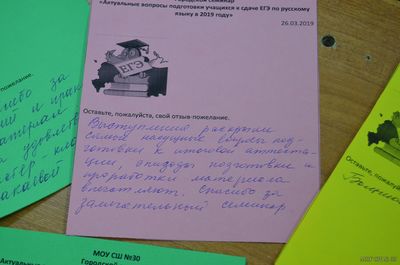 Городской семинар
«Актуальные вопросы подготовки учащихся к сдаче ЕГЭ по русскому
языку в 2019 году»
26.03.2019
ЕГЭ
Оставьте, пожалуйста, свой отзыв-пожелание.
Выступления раскрыли
самые насущные вопросы под-
готовки к итоговой аттеста-
ции, подготовки и
проработки материала
впечатляют. Спасибо за
замечательный семинар
пожелание.
за
МОУ СШ №30
Городской
Актуальные
Оставьте, пожалуйста